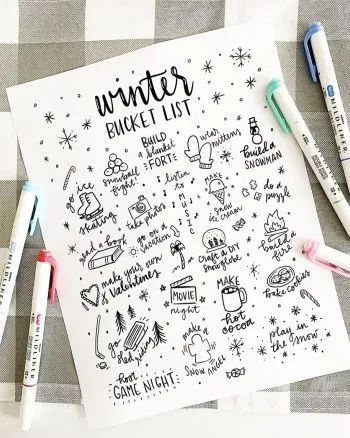 winter
BUCKET LIST
BUILD
a blanket
FORT
wear
mittens
build a
SNOWMAN
snowball
fight!
go ice
skating
take photos
listen to
MUSIC
MAKE
snow
ice cream
do a
puzzle
read a book
go on a
vacation
craft a DIY
snowglobe
build a
fire
make your own
Valentines
MOVIE
night
MAKE
hot
cocoa
bake cookies
go
sled
riding
make a
SNOW ANGEL
play in
the snow
host
GAME NIGHT
MILDLINER
MILDLINER
MILDLINER